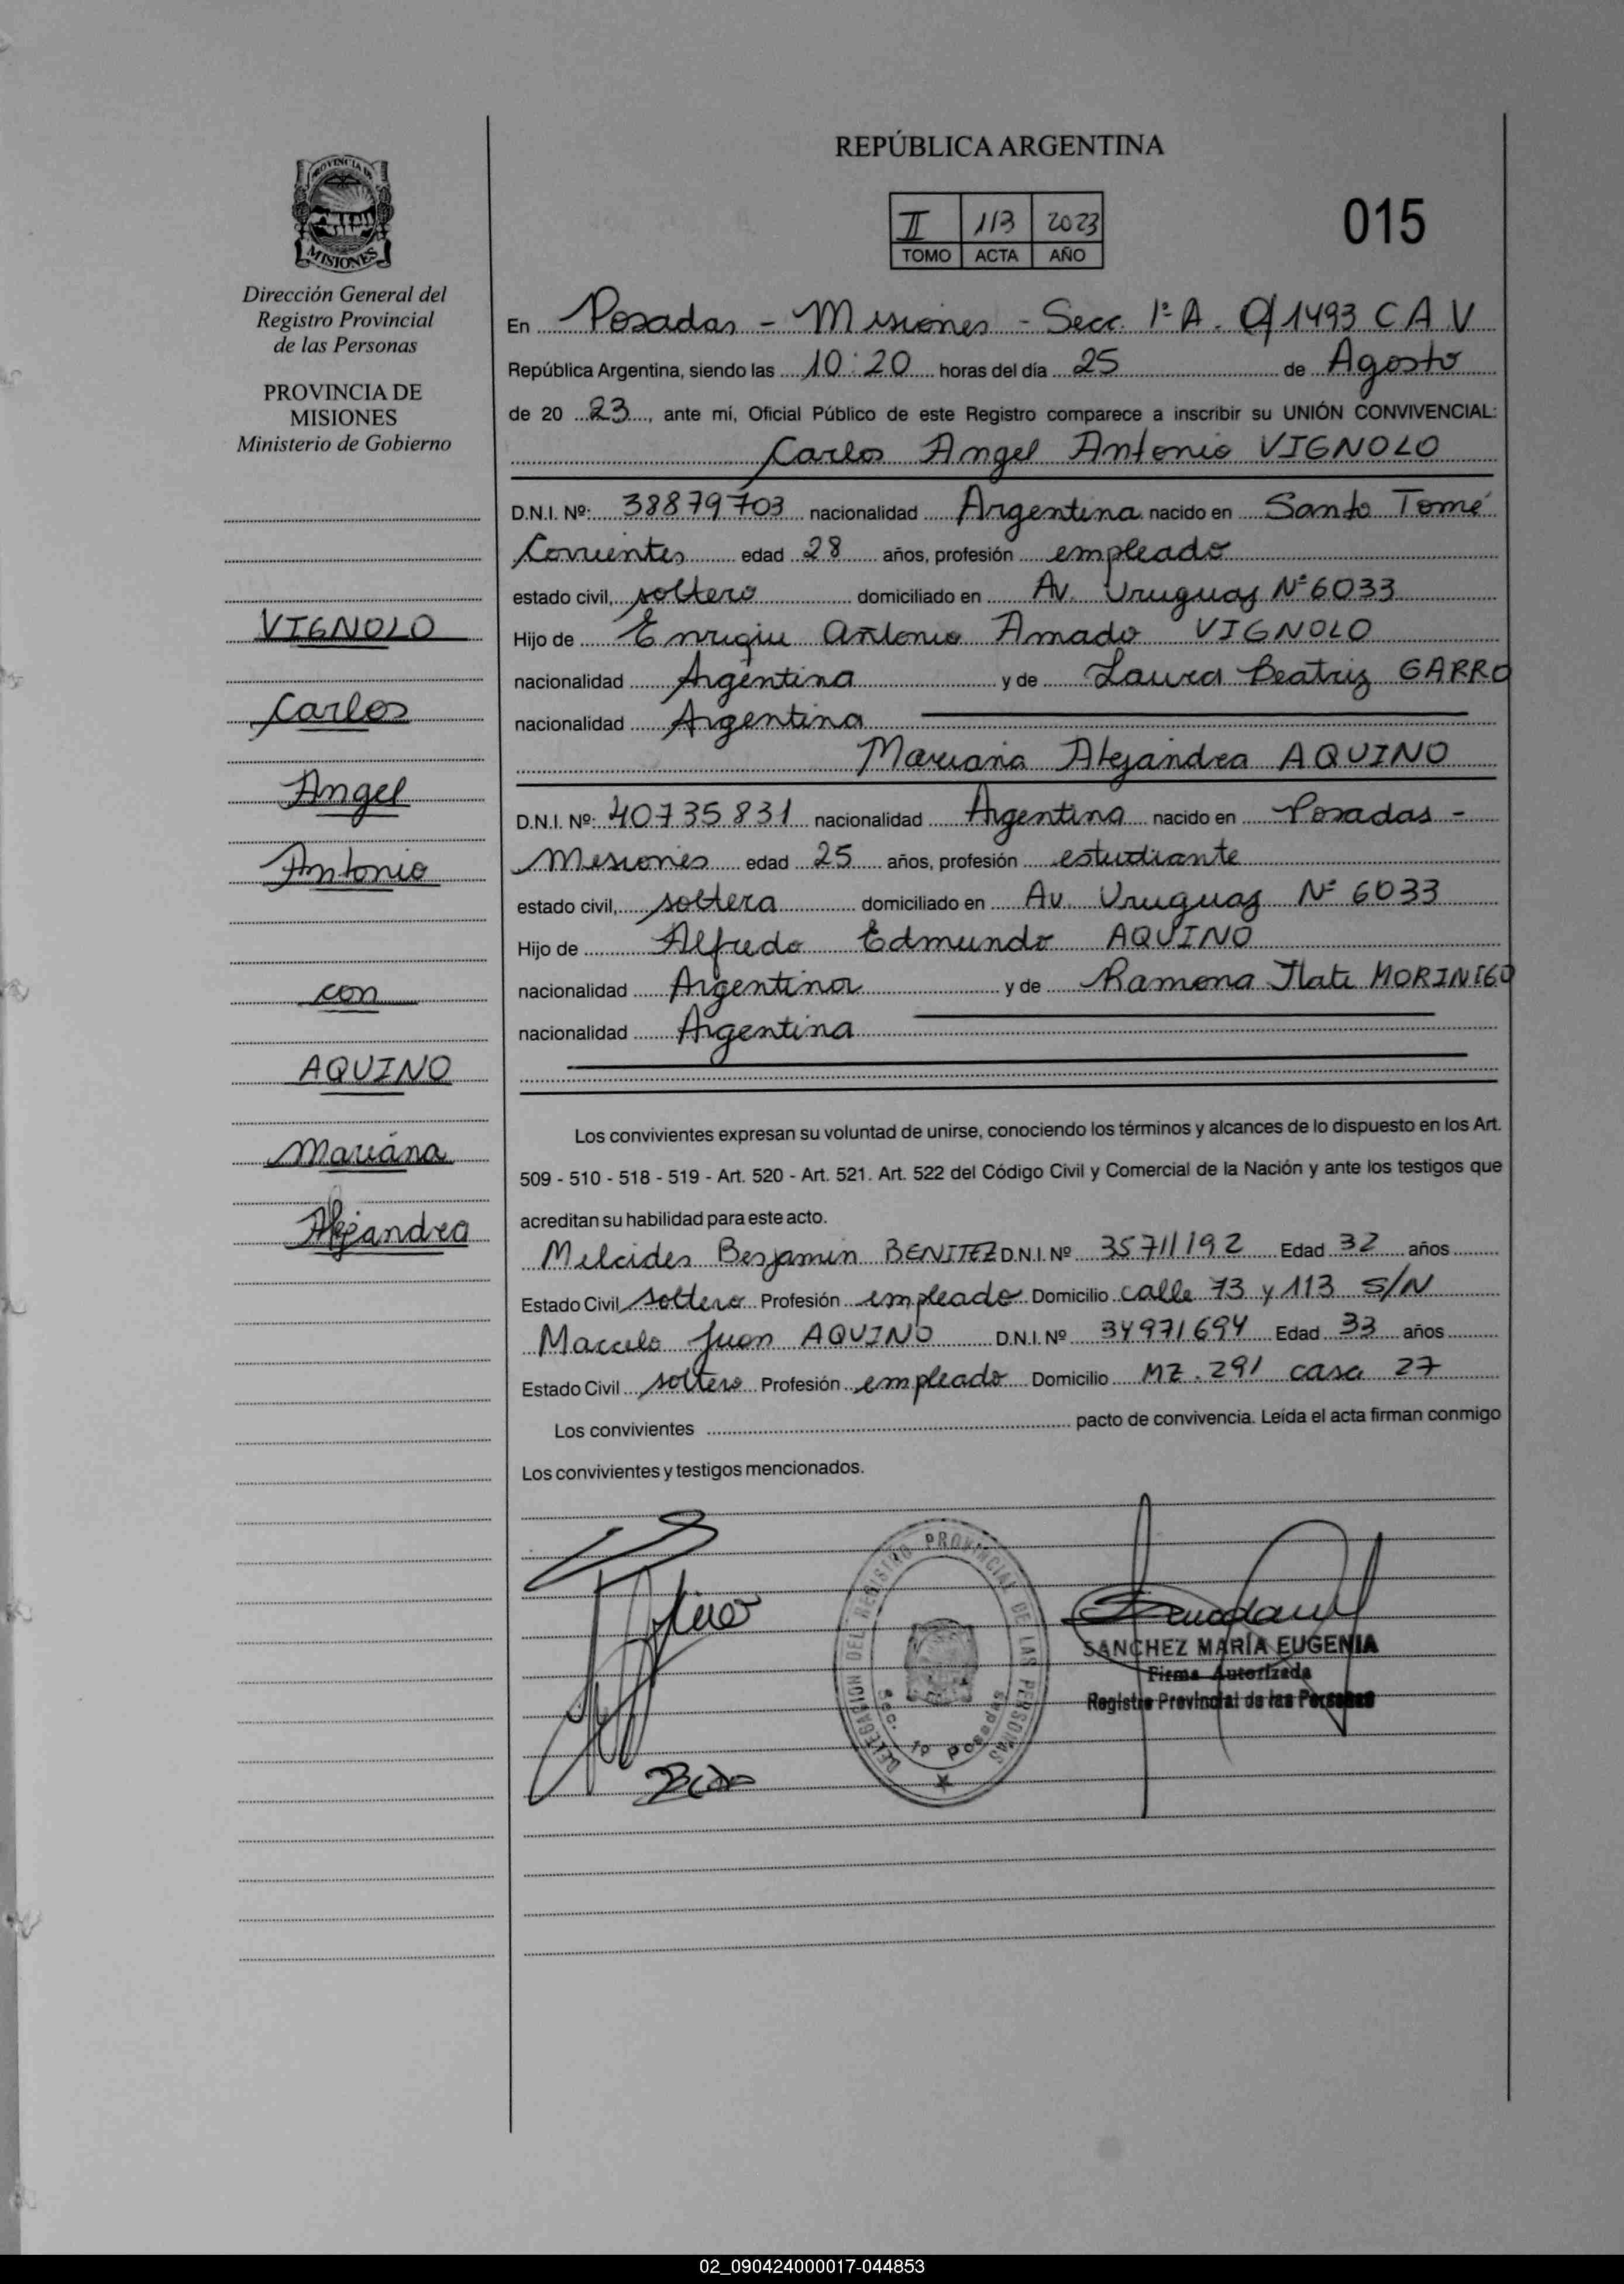 PROVINCIA DE
MISIONES
Dirección General del
Registro Provincial
de las Personas
PROVINCIA DE
MISIONES
Ministerio de Gobierno
VIGNOLO
Carlos
Angel
Antonio
con
AQUINO
Mariana
Alejandra
REPÚBLICA ARGENTINA
II 113 2023
TOMO ACTA AÑO
015
En Posadas - Misiones - Secc. 1ª A. 1493 C A V
República Argentina, siendo las 10:20 horas del día 25 de Agosto
de 20 23, ante mí, Oficial Público de este Registro comparece a inscribir su UNIÓN CONVIVENCIAL:
Carlos Angel Antonio VIGNOLO
D.N.I. Nº: 38879703 nacionalidad Argentina nacido en Santo Tomé
Corrientes edad 28 años, profesión empleado
estado civil, soltero domiciliado en Av. Uruguay Nº 6033
Hijo de Enrique Antonio Amado VIGNOLO
nacionalidad Argentina y de Laura Beatriz GARRO
nacionalidad Argentina
Mariana Alejandra AQUINO
D.N.I. Nº: 40735831 nacionalidad Argentina nacido en Posadas -
Misiones edad 25 años, profesión estudiante
estado civil, soltera domiciliado en Av. Uruguay Nº 6033
Hijo de Alfredo Edmundo AQUINO
nacionalidad Argentina y de Ramona Itati MORINIGO
nacionalidad Argentina
Los convivientes expresan su voluntad de unirse, conociendo los términos y alcances de lo dispuesto en los Art.
509 - 510 - 518 - 519 - Art. 520 - Art. 521. Art. 522 del Código Civil y Comercial de la Nación y ante los testigos que
acreditan su habilidad para este acto.
Melcides Benjamin BENITEZ D.N.I. Nº 35711192 Edad 32 años
Estado Civil soltero Profesión empleado Domicilio calle 73 y 113 S/N
Marcelo Juan AQUINO D.N.I. Nº 34971694 Edad 33 años
Estado Civil soltero Profesión empleado Domicilio MZ. 291 casa 27
Los convivientes pacto de convivencia. Leída el acta firman conmigo
Los convivientes y testigos mencionados.
DELEGACION DEL REGISTRO PROVINCIAL DE LAS PERSONAS
Sec. 1º Posadas
SANCHEZ MARÍA EUGENIA
Firma Autorizada
Registro Provincial de las Personas
02_090424000017-044853